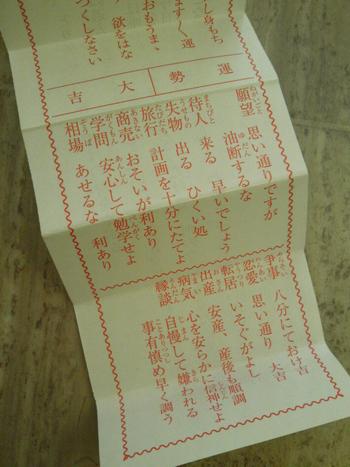 し身もち
ますく運
おもうまゝ
欲をはな
つくしなさい
運勢
大吉
願望 思い通りですが
油断するな
待人 来る 早いでしょう
失物 出る ひくい処
旅行 計画を十分にたてよ
商売 おそいが利あり
学問 安心して勉学せよ
相場 あせるな 利あり
争事 八分にておけ吉
恋愛 思い通り 大吉
転居 いそぐがよし
出産 安産、産後も順調
病気 心を安らかに信神せよ
縁談 自慢して嫌われる
事有慎め早く調う